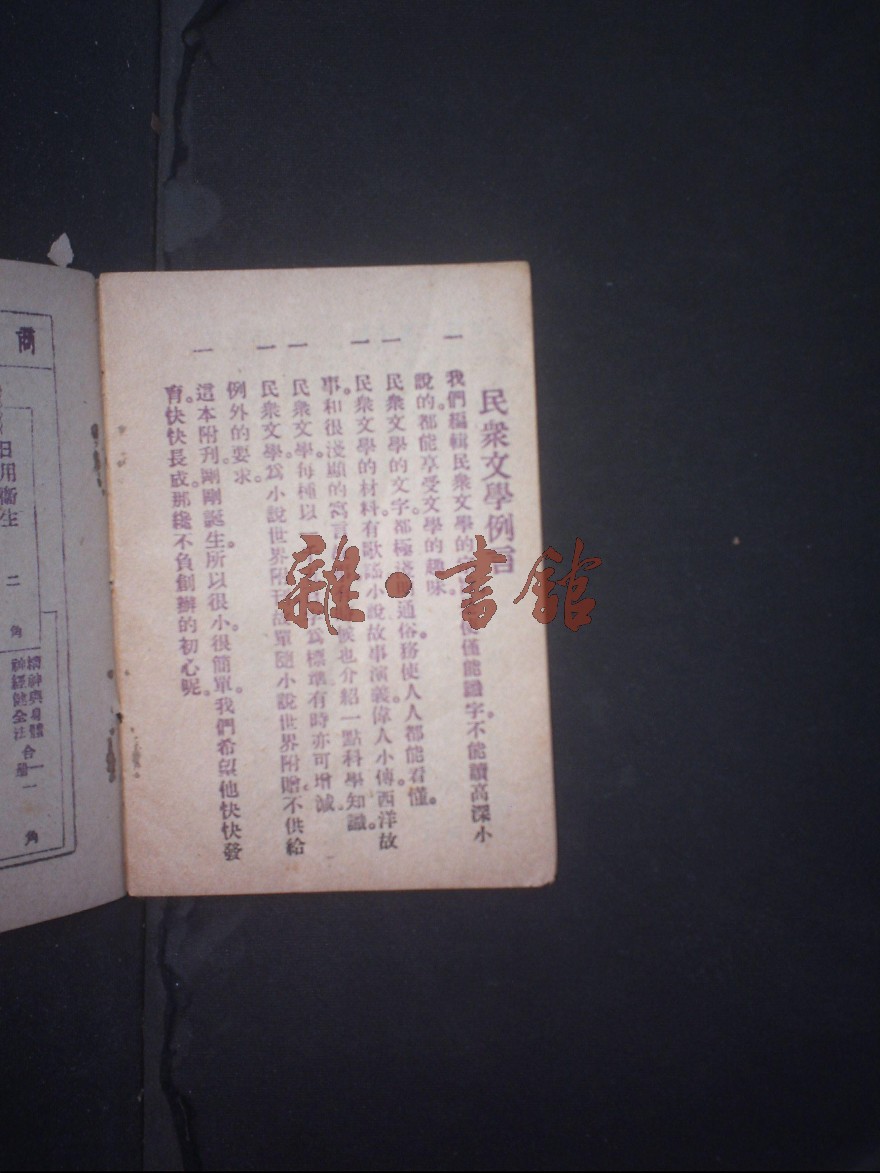 民衆文學例言
一 我們編輯民衆文學的 使僅能識字不能讀高深小
說的。都能享受文學的趣味。
一 民衆文學的文字。都極 通俗。務使人人都能看懂。
一 民衆文學的材料。有歌謠小說故事演義偉人小傳。西洋故
事。和很淺顯的寓言。 候也介紹一點科學知識。
一 民衆文學。每種以一 字爲標準。有時亦可增減。
一 民衆文學。爲小說世界附刊。故單隨小說世界附贈。不供給
例外的要求。
一 這本附刊剛剛誕生。所以很小很簡單。我們希望他快快發
育。快快長成。那纔不負創辦的初心呢。
雜·書館
商
日用衞生 二角
精神與身體
神經健全法 合一册 一角